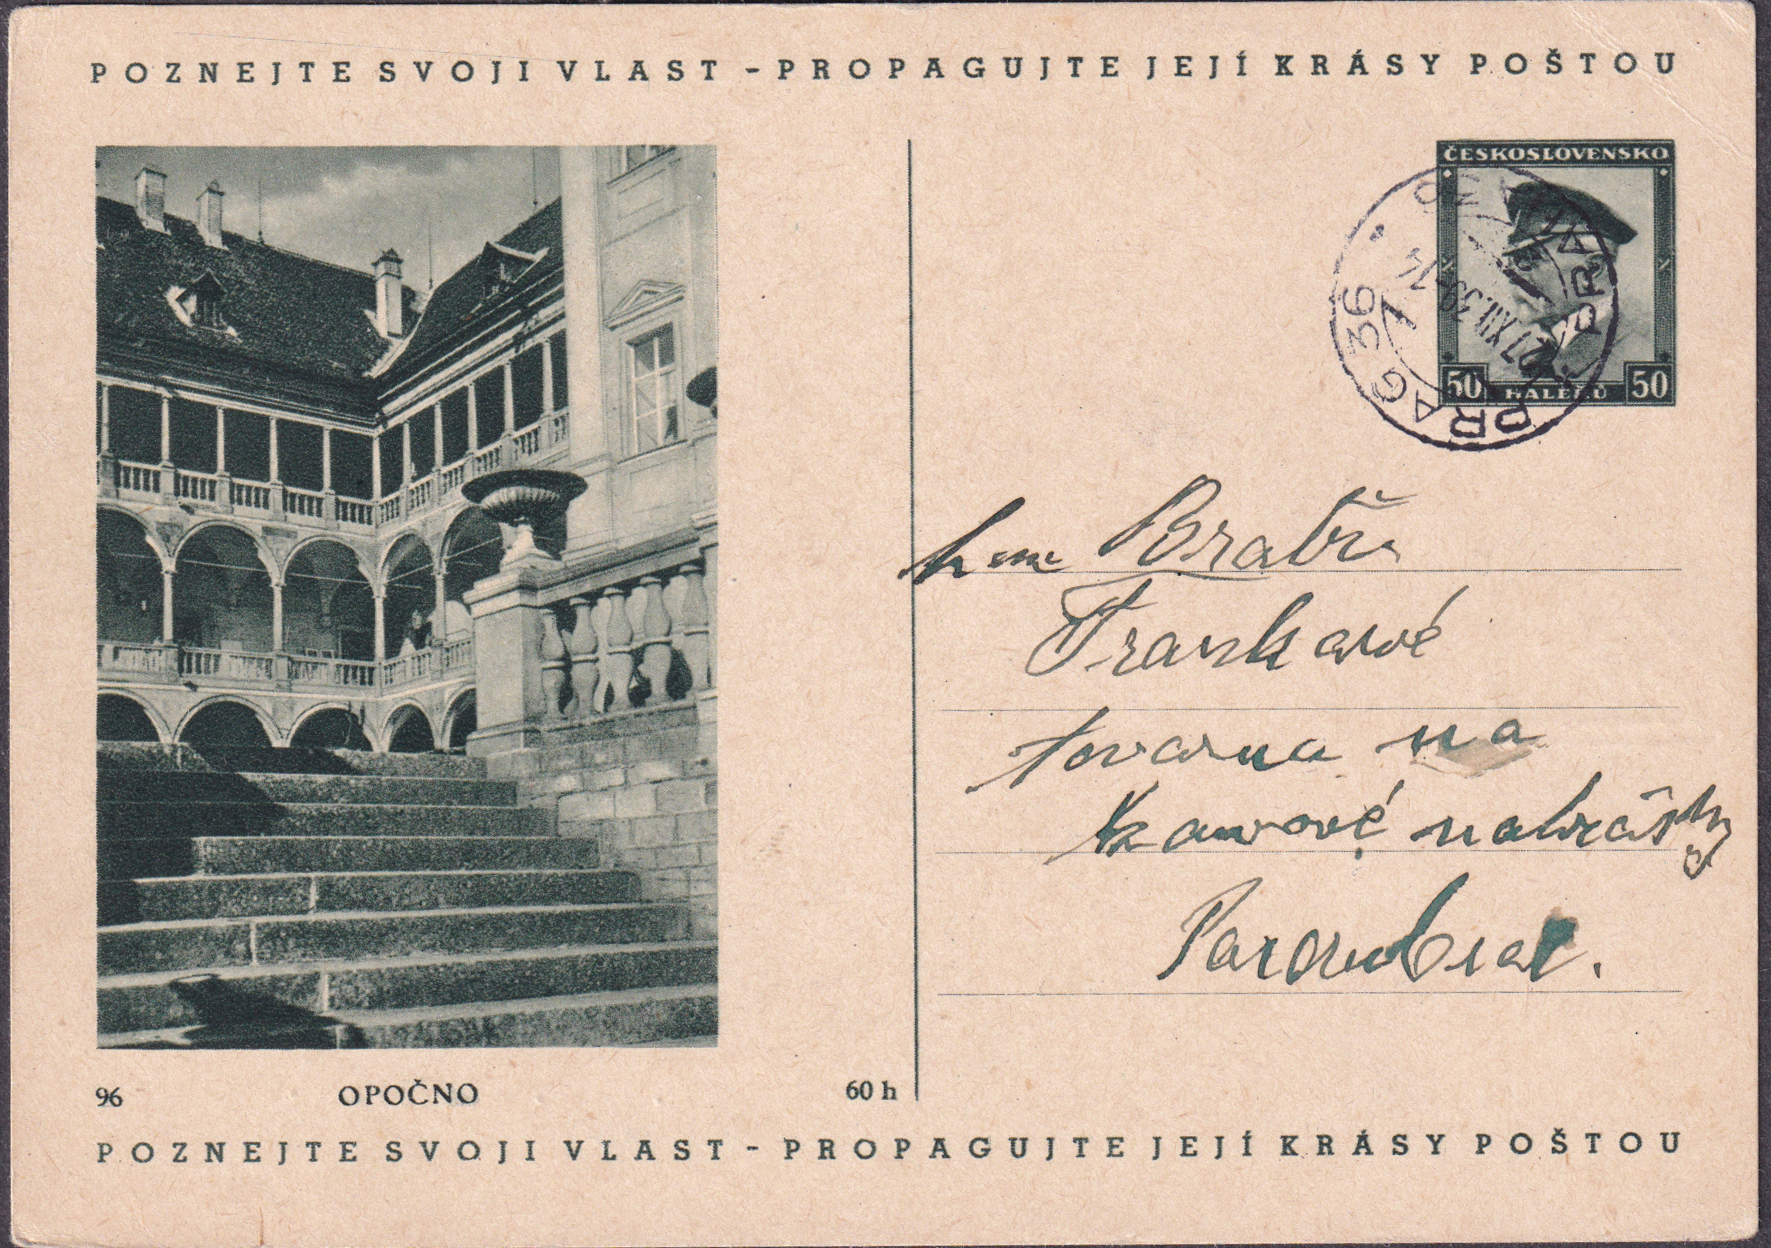 POZNEJTE SVOJI VLAST - PROPAGUJTE JEJÍ KRÁSY POŠTOU
ČESKOSLOVENSKO
50 HALÉŘŮ 50
PRAHA 36
PRAG 36
27.XII.39-14
Bratří
Frankové
tovarna na
kawové nahražky
Pardubice.
96 OPOČNO 60 h
POZNEJTE SVOJI VLAST - PROPAGUJTE JEJÍ KRÁSY POŠTOU